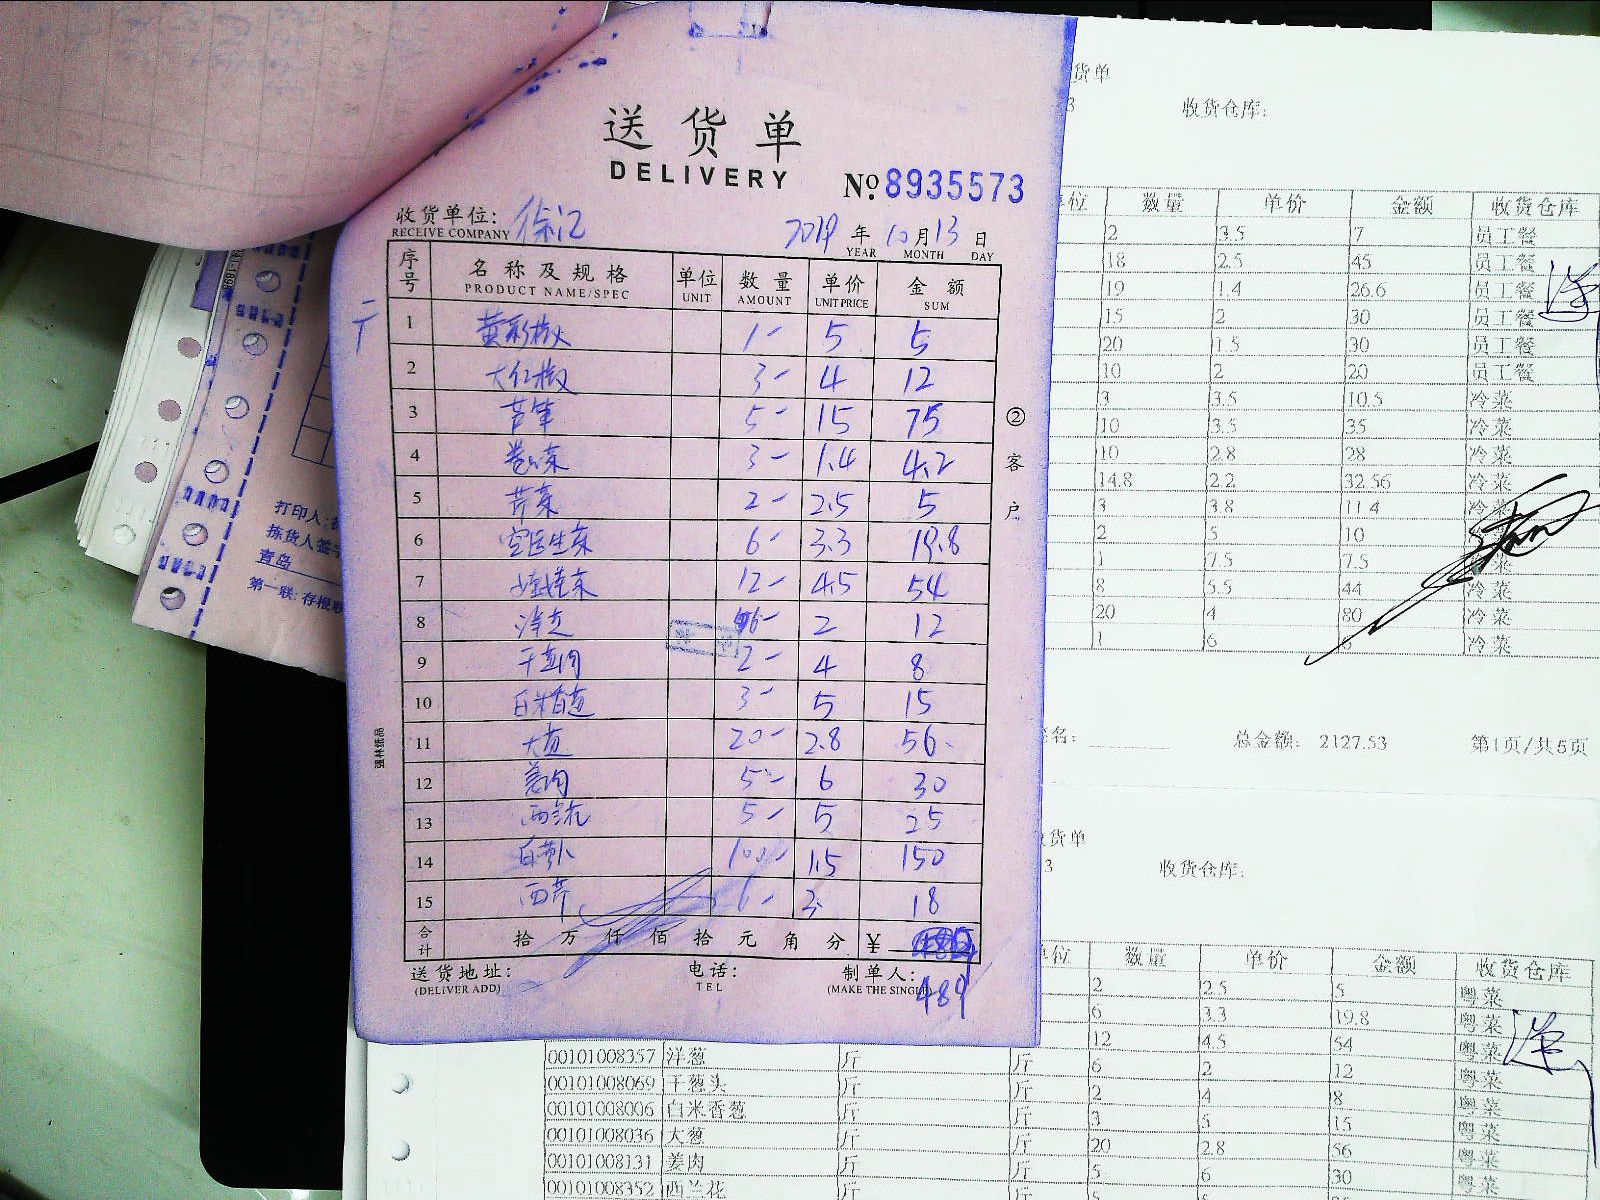 送货单
DELIVERY
№ 8935573
收货单位: 徐汇
RECEIVE COMPANY
2019 年 10 月 13 日
YEAR MONTH DAY
序号 名称及规格 单位 数量 单价 金额
PRODUCT NAME/SPEC UNIT AMOUNT UNIT PRICE SUM
1 黄彩椒 1- 5 5
2 大红椒 3- 4 12
3 芦笋 5- 15 75
4 卷心菜 3- 1.4 4.2
5 芹菜 2- 2.5 5
6 生菜 6- 3.3 19.8
7 12- 4.5 54
8 洋葱 6- 2 12
9 干葱肉 2- 4 8
10 白米香葱 3- 5 15
11 大葱 20- 2.8 56
12 姜肉 5- 6 30
13 西兰花 5- 5 25
14 白萝卜 100- 1.5 150
15 西芹 6- 3 18
合计 拾 万 仟 佰 拾 元 角 分 ¥
489
送货地址: 电话: 制单人:
(DELIVER ADD) TEL (MAKE THE SINGLE)
②客户
强林纸品
打印人:
拣货人签字
青岛
第一联: 存根联
货单
3 收货仓库:
单位 数量 单价 金额 收货仓库
2 3.5 7 员工餐
18 2.5 45 员工餐
19 1.4 26.6 员工餐
15 2 30 员工餐
20 1.5 30 员工餐
10 2 20 员工餐
3 3.5 10.5 冷菜
10 3.5 35 冷菜
10 2.8 28 冷菜
14.8 2.2 32.56 冷菜
3 3.8 11.4 冷菜
2 5 10
1 7.5 7.5 冷菜
8 5.5 44 冷菜
20 4 80 冷菜
1 6 6 冷菜
签名: 总金额: 2127.53 第1页/共5页
货单
3 收货仓库:
单位 数量 单价 金额 收货仓库
2 2.5 5 粤菜
6 3.3 19.8 粤菜
12 4.5 54 粤菜
00101008357 洋葱 斤 斤 6 2 12 粤菜
00101008069 干葱头 斤 斤 2 4 8 粤菜
00101008006 白米香葱 斤 斤 3 5 15 粤菜
00101008036 大葱 斤 斤 20 2.8 56 粤菜
00101008131 姜肉 斤 斤 5 6 30 粤菜
00101008352 西兰花 斤 斤